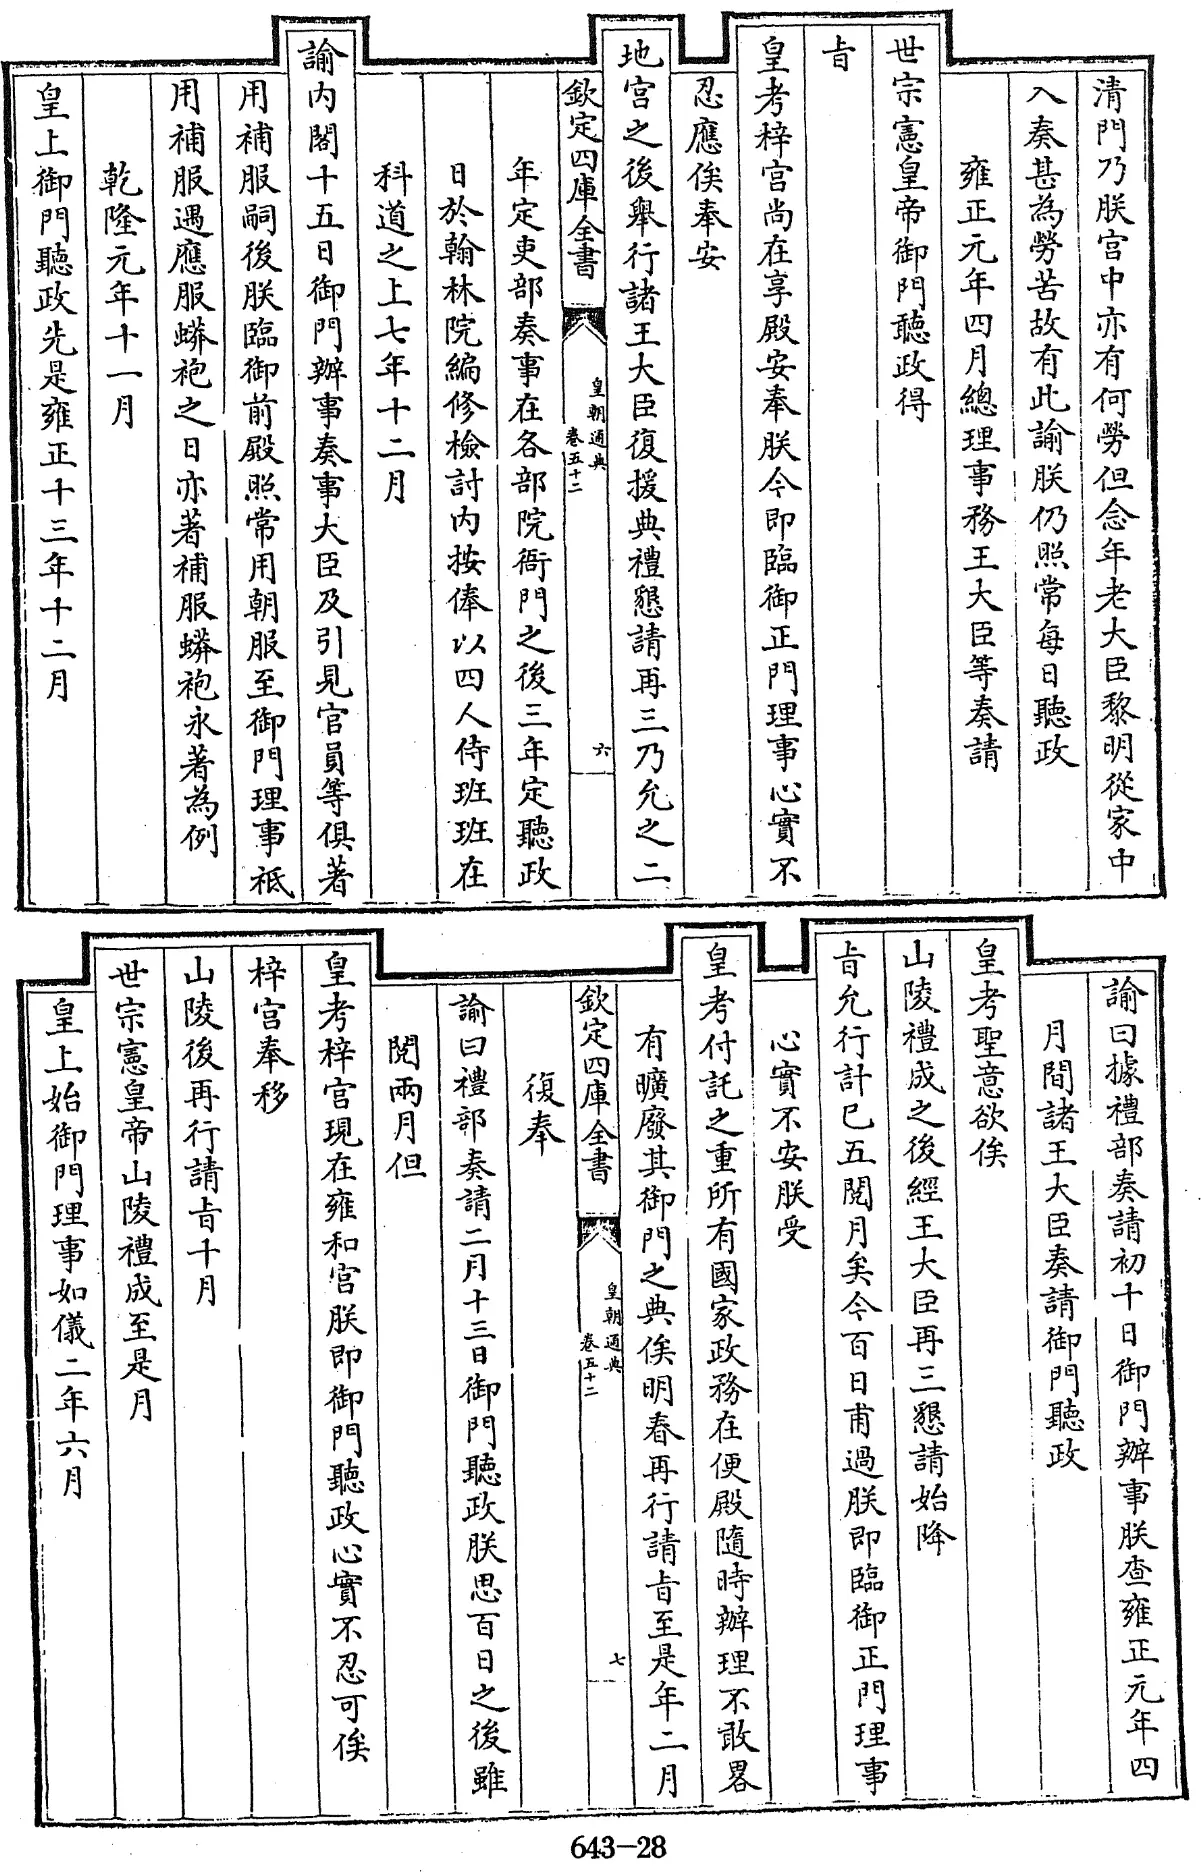 清門乃朕宫中亦有何勞但念年老大臣黎明從家中
入奏甚為勞苦故有此諭朕仍照常每日聽政
雍正元年四月總理事務王大臣等奏請
世宗憲皇帝御門聽政得
㫖
皇考梓宫尚在享殿安奉朕今即臨御正門理事心實不
忍應俟奉安
地宫之後舉行諸王大臣復援典禮懇請再三乃允之二
欽定四庫全書
皇朝通典
卷五十二
六
年定吏部奏事在各部院衙門之後三年定聽政
日於翰林院編修檢討内按俸以四人侍班班在
科道之上七年十二月
諭内閣十五日御門辦事奏事大臣及引見官員等俱著
用補服嗣後朕臨御前殿照常用朝服至御門理事祗
用補服遇應服蟒袍之日亦著補服蟒袍永著為例
乾隆元年十一月
皇上御門聽政先是雍正十三年十二月
諭曰據禮部奏請初十日御門辦事朕查雍正元年四
月間諸王大臣奏請御門聽政
皇考聖意欲俟
山陵禮成之後經王大臣再三懇請始降
㫖允行計已五閱月矣今百日甫過朕即臨御正門理事
心實不安朕受
皇考付託之重所有國家政務在便殿隨時辦理不敢畧
有曠廢其御門之典俟明春再行請㫖至是年二月
欽定四庫全書
皇朝通典
卷五十二
七
復奉
諭曰禮部奏請二月十三日御門聽政朕思百日之後雖
閱兩月但
皇考梓宫現在雍和宫朕即御門聽政心實不忍可俟
梓宫奉移
山陵後再行請㫖十月
世宗憲皇帝山陵禮成至是月
皇上始御門理事如儀二年六月
643-28